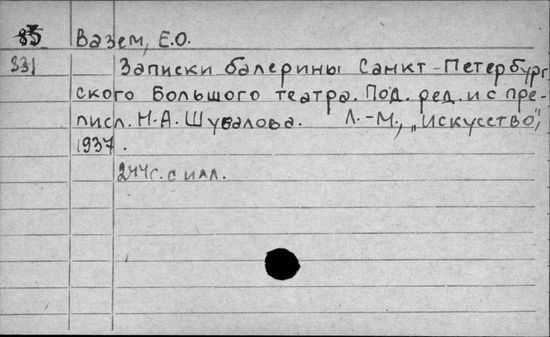 85 Вазем, Е.О.
831 Записки балерины Санкт-Петербург
ского Большого театра. Под. ред. и с пре-
дисл. Н.А. Шувалова. Л.-М., „Искусство",
1937.
244с. с илл.